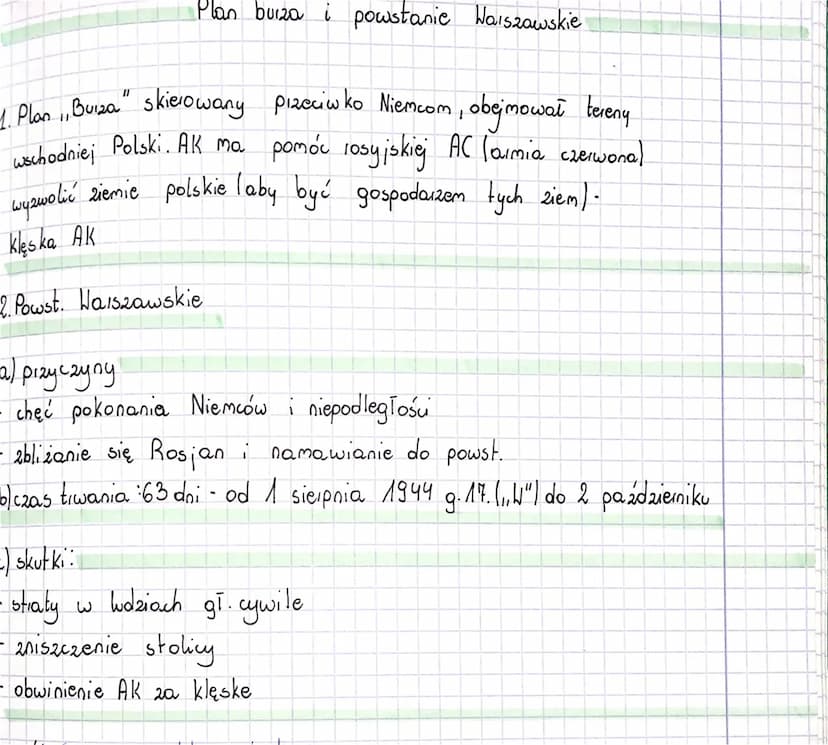 Plan burza i powstanie Warszawskie
1. Plan „Burza" skierowany przeciwko Niemcom, obejmował tereny
wschodniej Polski. AK ma pomóc rosyjskiej AC (armia czerwona)
wyzwolić ziemie polskie (aby być gospodarzem tych ziem).
klęska AK
2. Powst. Warszawskie
a) przyczyny
- chęć pokonania Niemców i niepodległości
- zbliżanie się Rosjan i namawianie do powst.
b) czas trwania: 63 dni - od 1 sierpnia 1944 g. 17. („W") do 2 październiku
c) skutki:
- straty w ludziach gł. cywile
- zniszczenie stolicy
- obwinienie AK za klęske